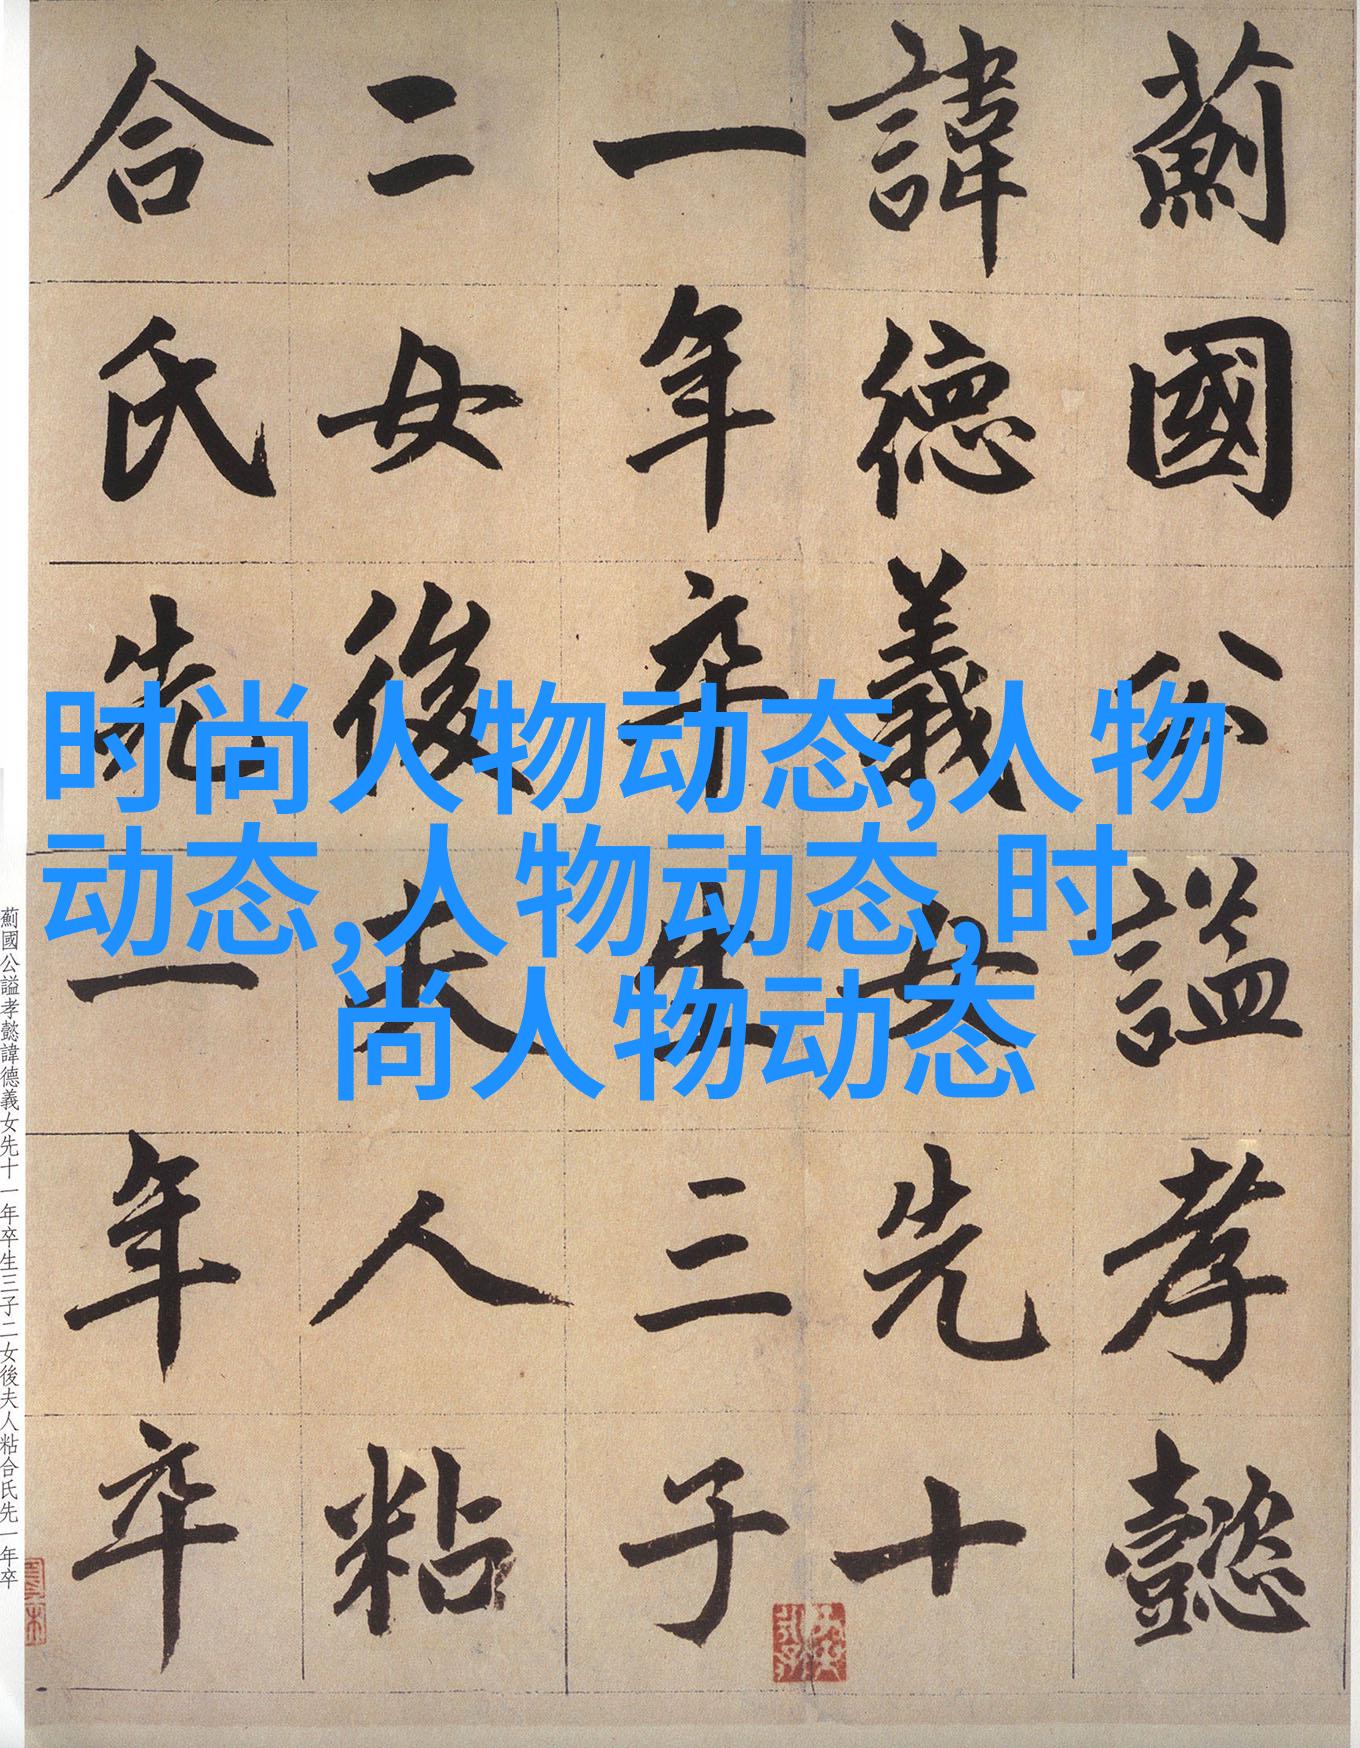 薊國公謚孝懿
諱德義女先十
一年卒生三子
二女後夫人粘
合氏先一年卒
时尚人物动态,人物
动态,人物动态,时
尚人物动态
薊國公謚孝懿諱德義女先十一年卒生三子二女後夫人粘合氏先一年卒